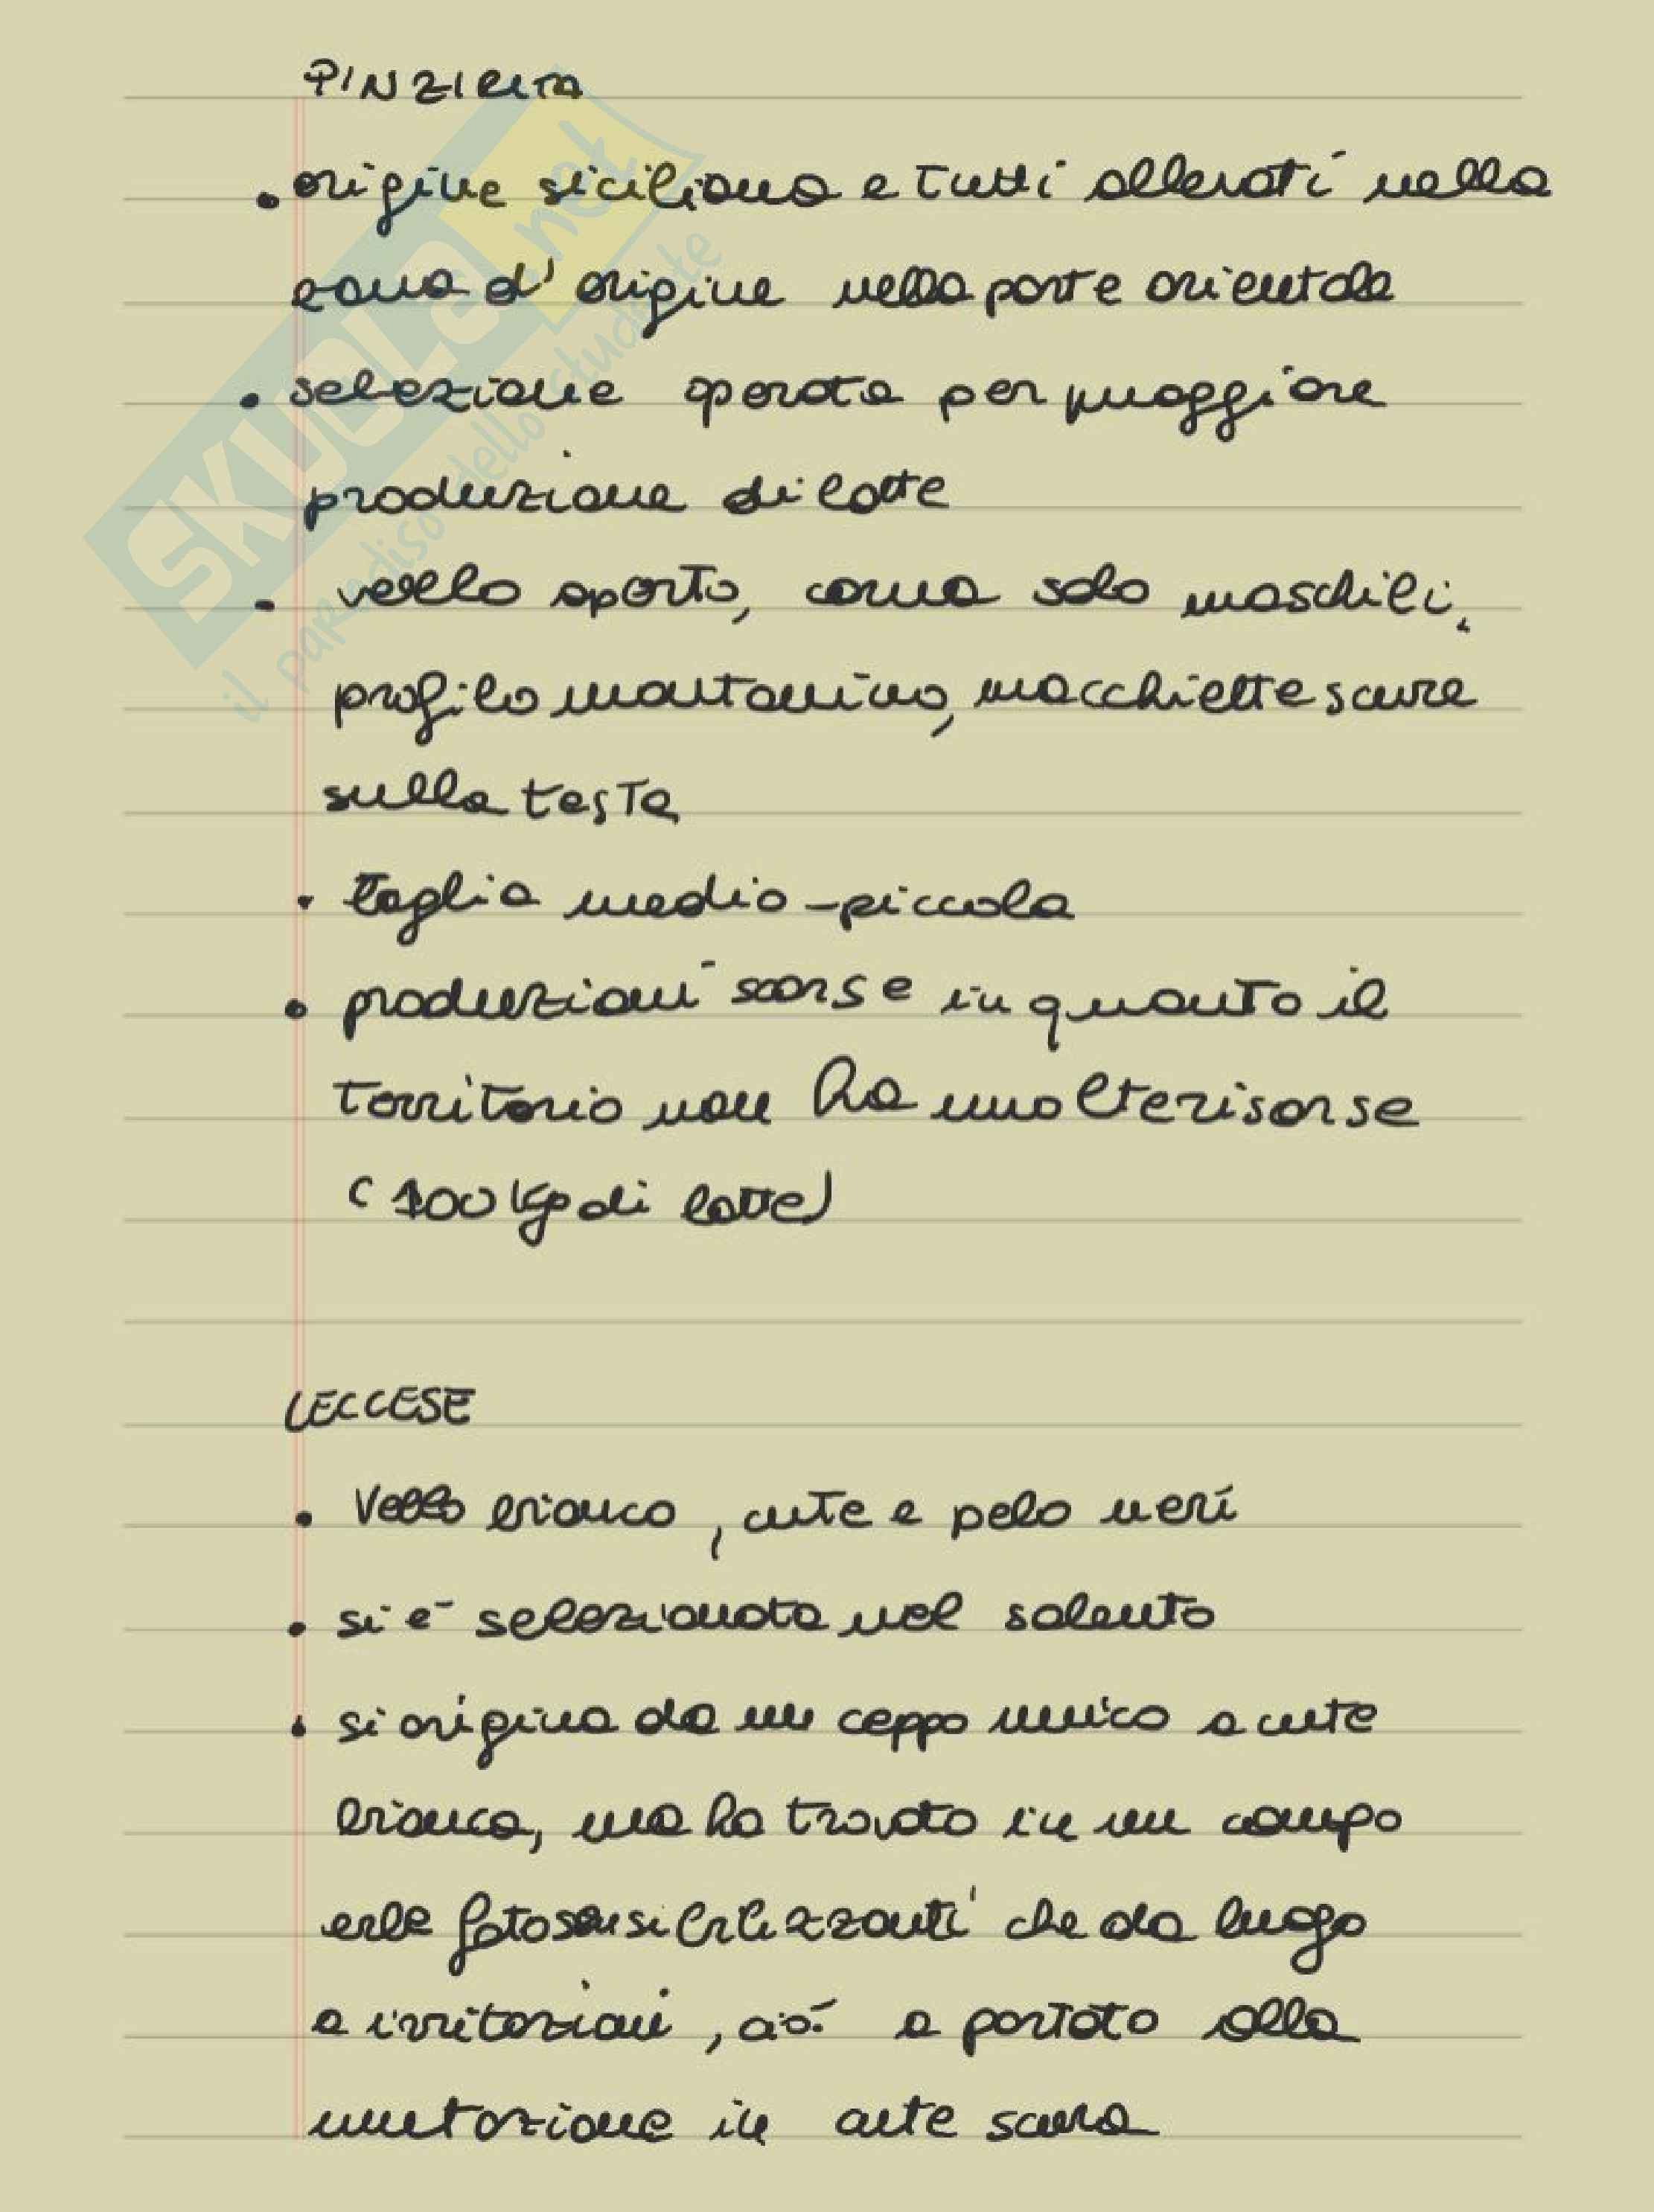 PINZIRITA
• origine siciliana e tutti allevati nella
zona d'origine nella parte orientale
• selezione operata per maggiore
produzione di latte
- vello aperto, corna solo maschili,
profilo montonino, macchiette scure
sulla testa
• taglia medio-piccola
• produzioni scarse in quanto il
territorio non ha molte risorse
(100 kg di latte)
LECCESE
• Vello bianco, cute e pelo neri
• si è selezionata nel salento
• si origina da un ceppo unico a cute
bianca, ma ha trovato in un campo
erbe fotosensibilizzanti che da luogo
a irritazioni, ciò a portato alla
mutazione in cute scura
SKUOLA.net
il paradiso dello studente